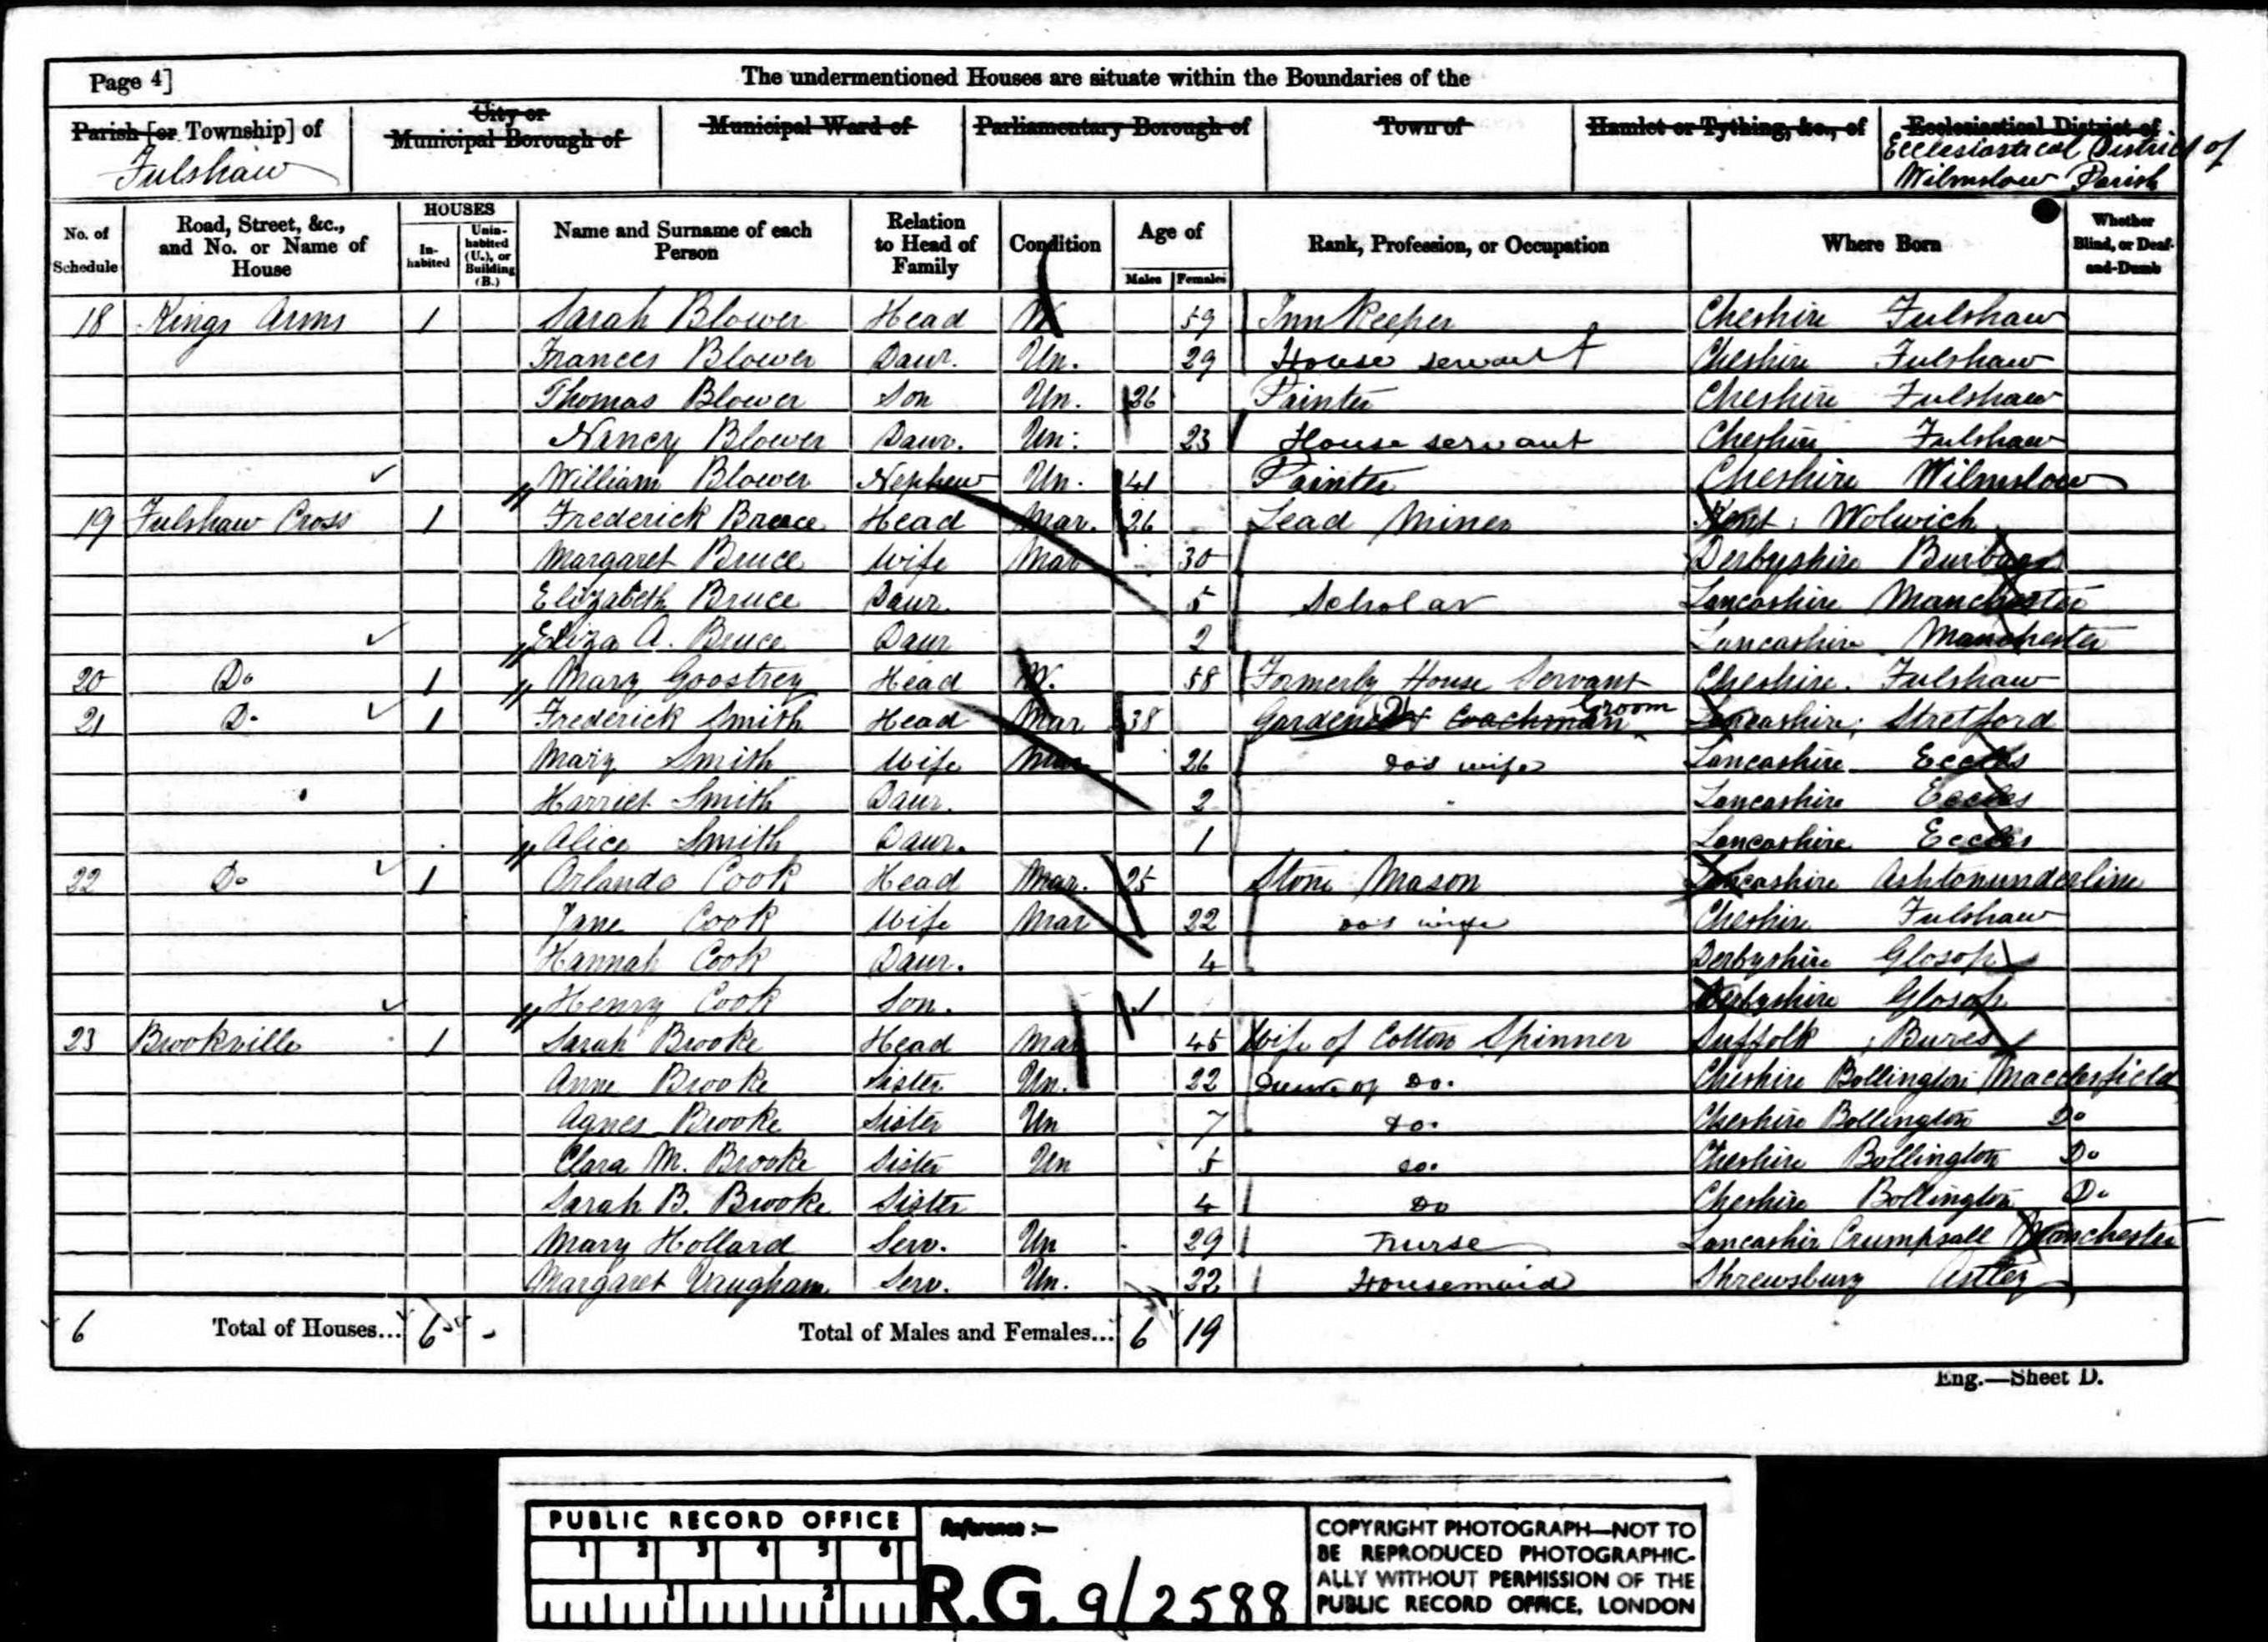 Page 4]
The undermentioned Houses are situate within the Boundaries of the
Parish [or Township] of
Fulshaw
City or
Municipal Borough of
Municipal Ward of
Parliamentary Borough of
Town of
Hamlet or Tything, &c., of
Ecclesiastical District of
Ecclesiastical District of
Wilmslow Parish
No. of Schedule
Road, Street, &c., and No. or Name of House
HOUSES
In-habited
Unin-habited (U.), or Building (B.)
Name and Surname of each Person
Relation to Head of Family
Condition
Age of
Males
Females
Rank, Profession, or Occupation
Where Born
Whether Blind, or Deaf-and-Dumb
18 Kings Arms 1 Sarah Blower Head W. 59 Inn Keeper Cheshire Fulshaw
Frances Blower Daur. Un. 29 House servant Cheshire Fulshaw
Thomas Blower Son Un. 26 Painter Cheshire Fulshaw
Nancy Blower Daur. Un. 23 House servant Cheshire Fulshaw
William Blower Nephew Un. 41 Painter Cheshire Wilmslow
19 Fulshaw Cross 1 Frederick Bruce Head Mar. 26 Lead Miner Kent Wolwich
Margaret Bruce Wife Mar 30 Derbyshire
Elizabeth Bruce Daur. 5 Scholar Lancashire Manchester
Eliza A. Bruce Daur 2 Lancashire Manchester
20 Do 1 Mary Goostrey Head W. 58 Formerly House Servant Cheshire. Fulshaw
21 Do 1 Frederick Smith Head Mar 38 Gardener & Coachman Groom Lancashire; Stretford
Mary Smith Wife Mar 26 do's wife Lancashire Eccles
Harriet Smith Daur. 2 Lancashire Eccles
Alice Smith Daur. 1 Lancashire Eccles
22 Do 1 Orlando Cook Head Mar. 25 Stone Mason Lancashire Ashtonunderline
Jane Cook Wife Mar 22 do's wife Cheshire Fulshaw
Hannah Cook Daur. 4 Derbyshire Glosop
Henry Cook Son. 1 Derbyshire Glosop
23 Brookville 1 Sarah Brooke Head Mar 45 Wife of Cotton Spinner Suffolk Bures
Anne Brooke Sister Un. 22 Daur of Do. Cheshire Bollington Macclesfield
Agnes Brooke Sister Un 7 do. Cheshire Bollington Do
Clara M. Brooke Sister Un 5 do. Cheshire Bollington Do
Sarah B. Brooke Sister 4 Do Cheshire Bollington Do
Mary Hollard Serv. Un 29 Nurse Lancashir Crumpsall Manchester
Margaret Vaugham Serv. Un. 22 Housemaid Shrewsbury Astley
6 Total of Houses... 6 - Total of Males and Females... 6 19
Eng.—Sheet D.
PUBLIC RECORD OFFICE
1 2 3 4 5 6
1 2
Reference :—
R.G. 9/2588
COPYRIGHT PHOTOGRAPH—NOT TO
BE REPRODUCED PHOTOGRAPHIC-
ALLY WITHOUT PERMISSION OF THE
PUBLIC RECORD OFFICE, LONDON